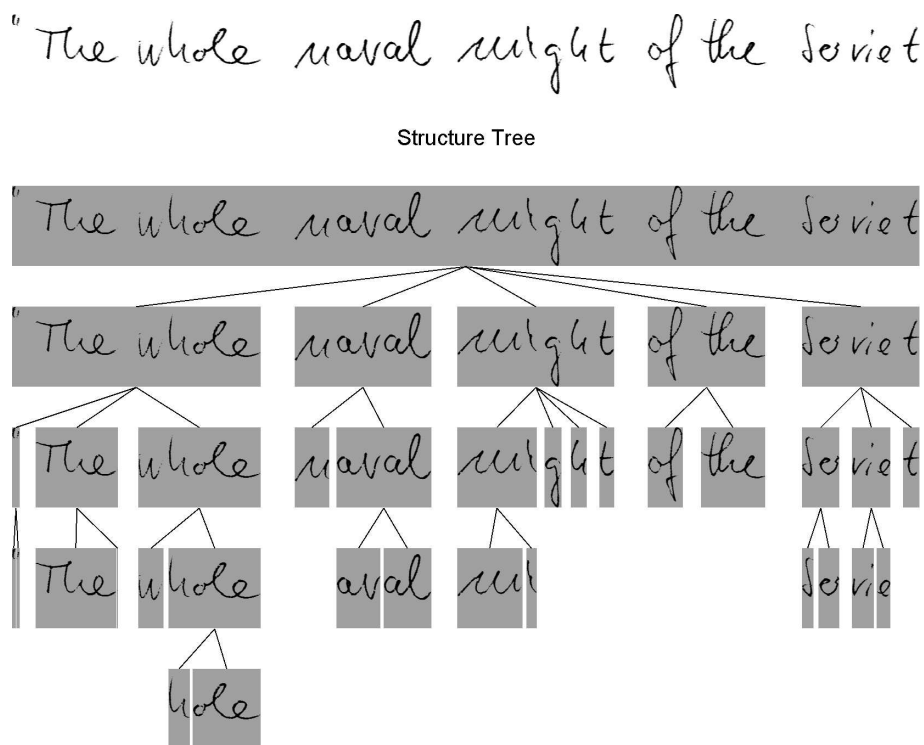 " The whole naval might of the Soviet
Structure Tree
" The whole naval might of the Soviet
" The whole naval might of the Soviet
" The whole n aval mi g h t of the So vie t
" The w hole av al m i S o vi e
h ole